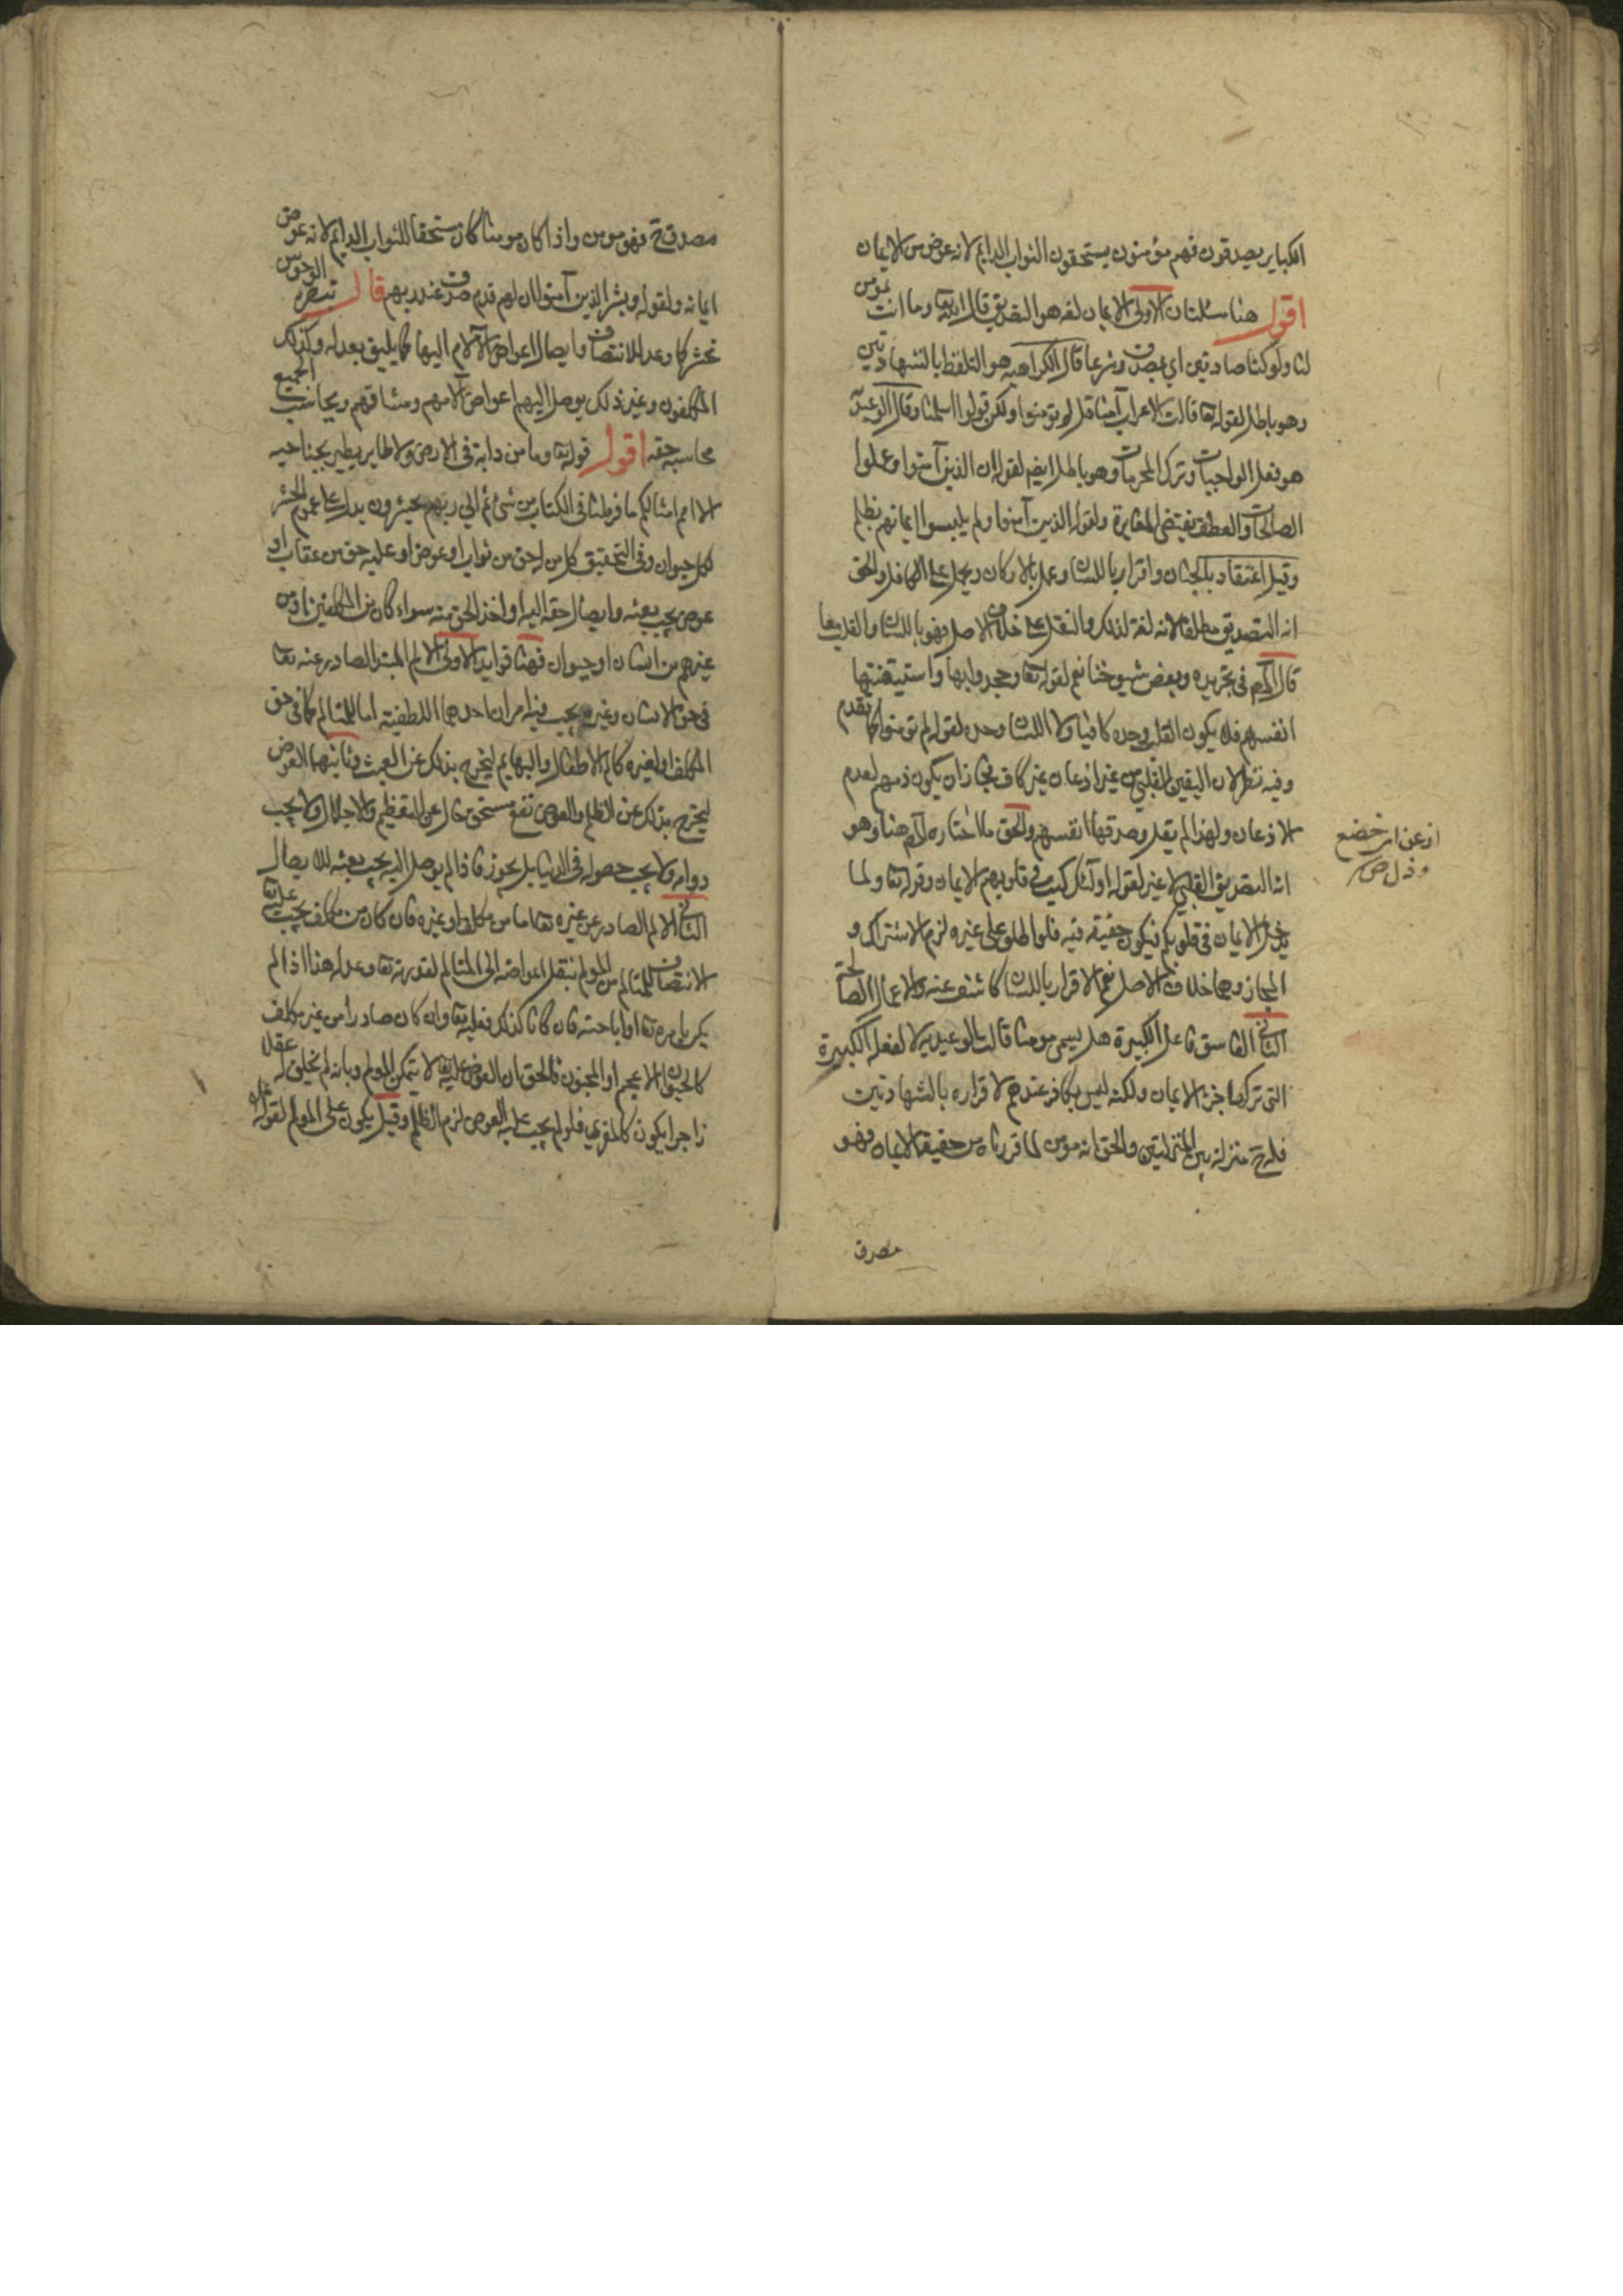 الكباير يصدقون فهم مؤمنون يستحقون الثواب الدايم لانه عوض من الايمان
اقول هنا مسئلتان الاولى الايمان لغة هو التصديق قال الله تعا وما انت بمومن
لنا ولو كنا صادقين اي بمصدق وشرعا قال الكراميه هو التلفظ بالشهادتين
وهو باطل لقوله تعا قالت الاعراب آمنا قل لم تومنوا ولكن قولوا اسلمنا وقال الوعيديه
هو فعل الواجبات وترك المحرمات وهو باطل ايضا لقوله ان الذين آمنوا وعملوا
الصالحات والعطف يقتضي المغايرة ولقوله الذين آمنوا ولم يلبسوا ايمانهم بظلم
وقيل اعتقاد بالجنان واقرار باللسان وعمل بالاركان ويحمل على الكامل والحق
انه التصديق مطلقا لانه لغة لذلك والنقل على خلاف الاصل فهو باللسان والقلب معا
قال المص في تجريده وبعض شيوخنا نعم لقوله تعا وجحدوا بها واستيقنتها
انفسهم فلا يكون القلب وحده كافيا ولا اللسان وحده لقوله لم تومنوا كما تقدم
وفيه نظر لان اليقين القلبي من غير اذعان غير كاف فجاز ان يكون ذمهم لعدم
الاذعان ولهذا لم يقل وصدقها انفسهم والحق ما اختاره المص هنا وهو
انه التصديق القلبي لا غير لقوله اولئك كتب في قلوبهم الايمان وقوله تعا ولما
يدخل الايمان في قلوبكم فيكون حقيقة فيه فلو اطلق على غيره لزم الاشتراك و
المجاز وهما خلاف الاصل نعم الاقرار باللسان كاشف عنه والاعمال الصالحة
الثاني الفاسق فاعل الكبيرة هل يسمى مومنا قالت الوعيديه لا لفعله الكبيرة
التي تركها جزء الايمان ولكنه ليس بكافر عندهم لاقراره بالشهادتين
فله ح منزلة بين المنزلتين والحق انه مومن لما قررناه من حقيقة الايمان فهو
مصدق
اذعن اي خضع
وذل ص
مصدق ح فهو مومن واذا كان مومنا كان مستحقا للثواب الدايم لانه عوض
ايمانه ولقوله وبشر الذين آمنوا ان لهم قدم صدق عند ربهم قال تبصره الوحوش
تحشر كا وعد للانتصاف وايصال اعواض الآلام اليها كما يليق بعدله وكذلك
المكلفون وغير ذلك يوصل اليهم اعواض آلامهم ومشاقهم ويحاسب الجميع
محاسبه حقه اقول قوله تعا وما من دابة في الارض ولا طاير يطير بجناحيه
الا امم امثالكم ما فرطنا في الكتاب من شئ ثم الي ربهم يحشرون يدل على عموم الحشر
لكل حيوان وفي التحقيق كل من له حق من ثواب او عوض او عليه حق من عقاب او
عوض يجب بعثه وايصال حقه اليه او اخذ الحق منه سواء كان من المكلفين او من
غيرهم من انسان او حيوان فهنا فوايد الاولى الالم المبتدا الصادر عنه تعا
في حق الانسان وغيره يجب فيه امران احدهما اللطفيه اما للمتالم كما في حق
المكلف او لغيره كالم الاطفال والبهايم ليخرج بذلك عن العبث وثانيهما العوض
ليخرج بذلك عن الظلم والعوض نفع مستحق خال عن التعظيم والاجلال ولا يجب
دوامه ولا يجب حصوله في الدنيا بل يجوز فاذا لم يوصل اليه يجب بعثه للايصال
الثاني الالم الصادر عن غيره تعا اما من مكلف او غيره فان كان من مكلف يجب عليه تعا
الانتصاف للمتالم من المولم بنقل اعواضه الى المتالم لقدرته تعا وعدله هذا اذا لم
يكن بامره تعا او اباحته فان كانا كذلك فعليه تعا وان كان صادرا من غير مكلف
كالحيوان الاعجم او المجنون فالحق ان العوض عليه تعا لانه يتمكن المولم وبانه لم يخلق له عقلا
زاجرا يكون كالمغري فلو لم يجب عليه العوض لزم الظلم وقيل يكون على المولم لقوله